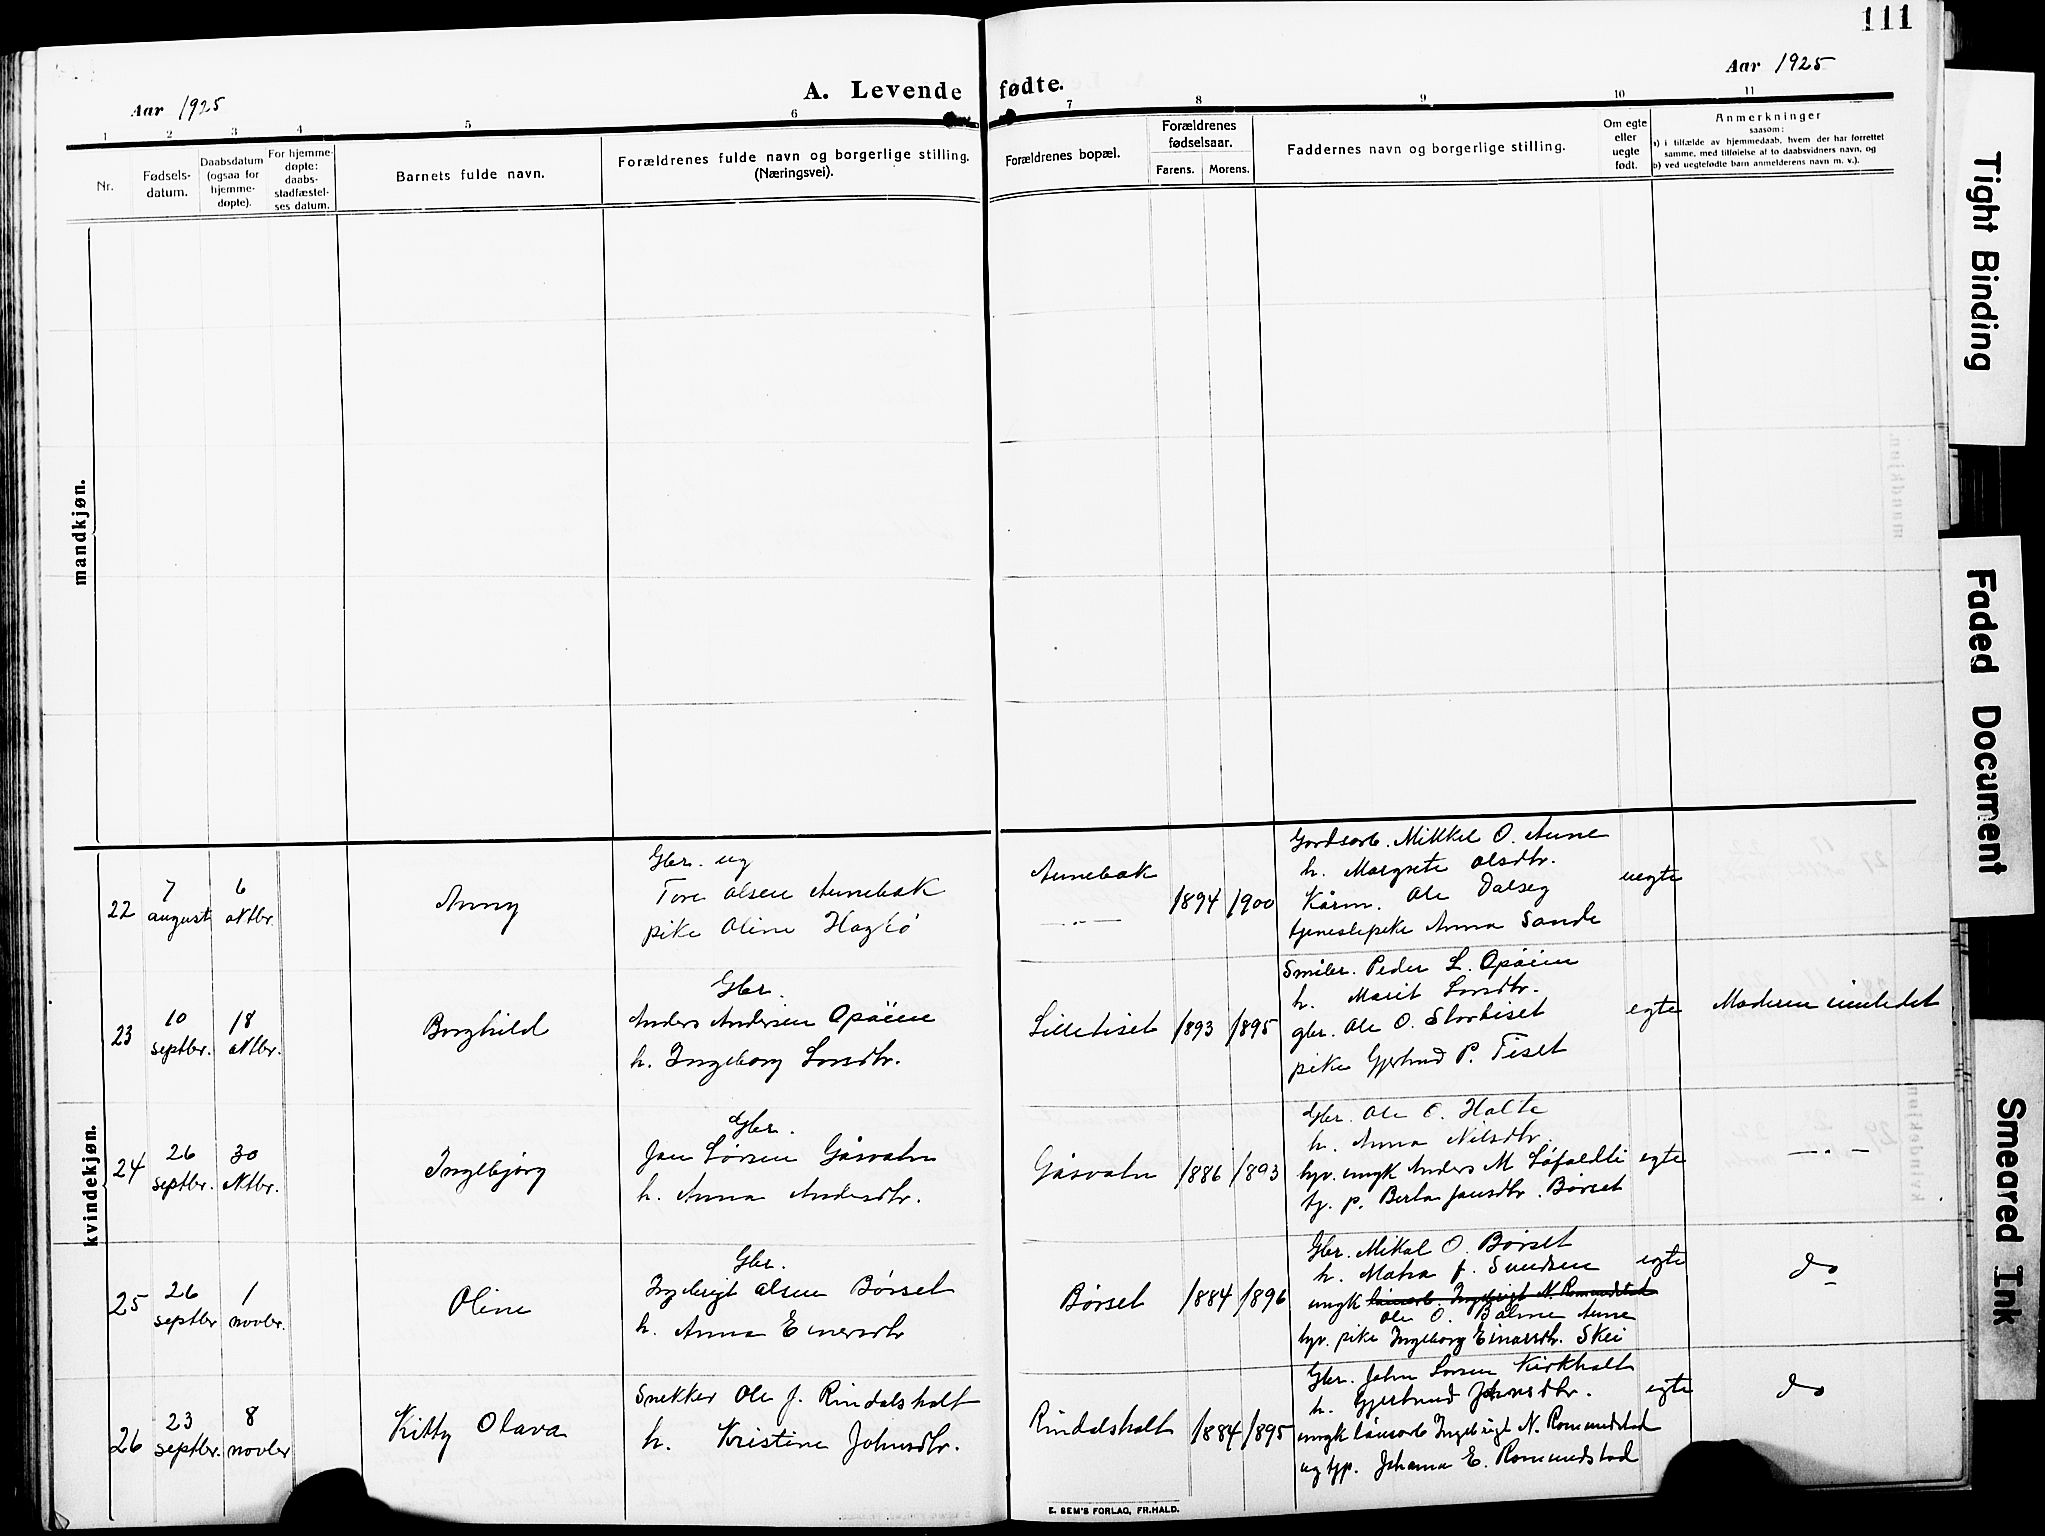 111
Aar 1925
A. Levende fødte.
Aar 1925
1 2 3 4 5 6 7 8 9 10 11
Nr.
Fødsels-
datum.
Daabsdatum
(ogsaa for
hjemme-
døpte).
For hjemme-
døpte:
daabs-
stadfæstel-
ses datum.
Barnets fulde navn.
Forældrenes fulde navn og borgerlige stilling.
(Næringsvei).
Forældrenes bopæl.
Forældrenes
fødselsaar.
Farens. Morens.
Faddernes navn og borgerlige stilling.
Om egte
eller
uegte
født.
Anmerkninger
saasom:
a) i tilfælde av hjemmedaab, hvem der har forrettet
samme, med tilføielse af to daabsvidners navn, og
b) ved uegtefødte barn anmelderens navn m. v.).
mandkjøn.
kvindekjøn.
22
7
august
6
oktbr.
Anny
Gbr. ug
Tore Olsen Aunebak
pike Oline Hagbø
Aunebak
1894 1900
Gardsarb. Mikkel O. Aune
h. Margrete Olsdtr.
Kårm. Ole Dalseg
tjenestepike Anna Sande
uegte
23
10
septbr.
18
oktbr.
Borghild
Gbr.
Anders Andersen Opøien
h. Ingeborg Larsdtr.
Lilletiset
1893 1895
Peder L. Opøien
h. Marit Larsdtr.
gbr. Ole O. Stortiset
pike Gjertrud P. Tiset
egte
Moderen innledet
24
26
septbr.
30
oktbr.
Ingebjørg
Gbr.
Jon Larsen Gåsvatn
h. Anna Andersdtr.
Gåsvatn
1886 1893
Gbr. Ole O. Halte
h. Anna Nilsdtr.
hjv. ungk Anders M Løfaldli
tj. p. Berta Jonsdtr. Børset
egte
— . —
25
26
septbr
1
novbr.
Oline
Gbr.
Ingebrigt Olsen Børset
h. Anna Einarsdtr
Børset
1884 1896
Gbr. Mikal O. Børset
h. Mata J. Svendsen
ungk lånsarb. Ingebrigt N. Romundstad
Ole O. Bolme Aune
hjv. pike Ingeborg Einarsdtr. Skei
egte
do
26
23
septbr.
8
novbr
Kitty Olava
Snekker Ole J. Rindalsholt
h. Kristine Johnsdtr.
Rindalsholt
1884 1895
Gbr. John Larsen Kirkholt
h. Gjertrud Johnsdtr.
ungk lånsarb Ingebrigt N. Romundstad
ug hjp. Johanna E. Romundstad
egte
do
E. SEM'S FORLAG, FR.HALD.
Tight Binding
Faded Document
Smeared Ink